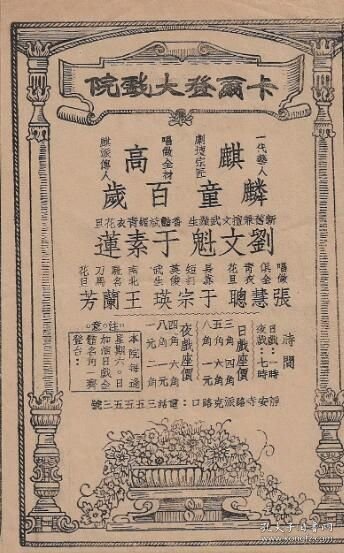 卡爾登大戲院
一代藝人
劇壇宗匠
麒麟童
唱做全材
麒派傳人
高百歲
新舊兼擅文武鬚生
劉文魁
香艷旋經青衣花旦
于素蓮
唱做俱全
青衣花旦
張慧聰
長靠短打
英俊武生
于宗瑛
南北馳名
刀馬花旦
王蘭芳
時間
日戲:一時
夜戲:七時
日戲座價
三角 四角
五角 六角
八角 一元
夜戲座價
四角 六角
八角 一元
一元二角
注意
本院每逢
星期六。日
加演日戲全
體名角一齊
登台:
靜安寺路派克路口:電話三五五五三號
孔夫子旧书网